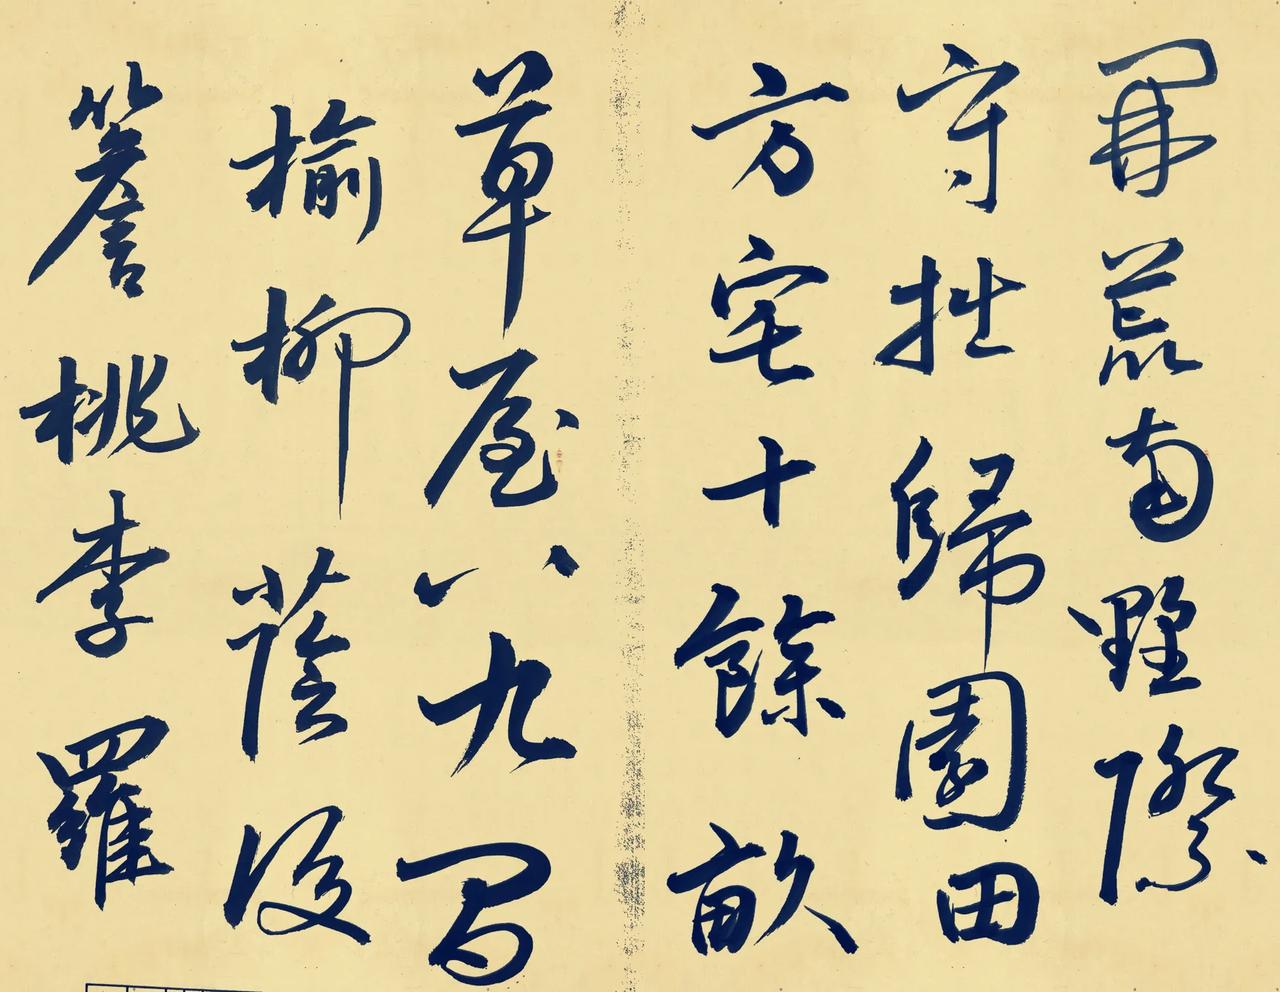 開荒南野際
守拙歸園田
方宅十餘畝
草屋八九間
榆柳蔭後
簷桃李羅